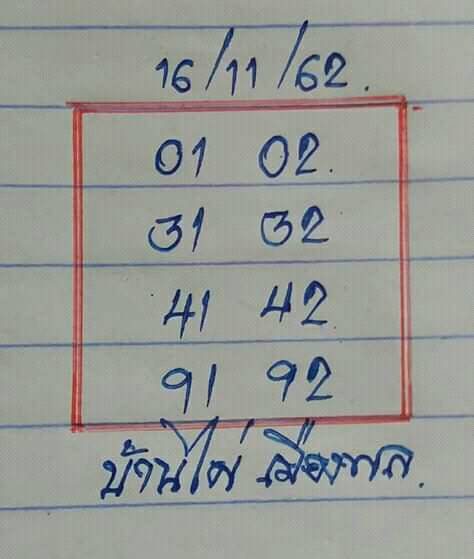 16/11/62.
01 02.
31 32
41 42
91 92
บ้านไผ่ เมืองพล.